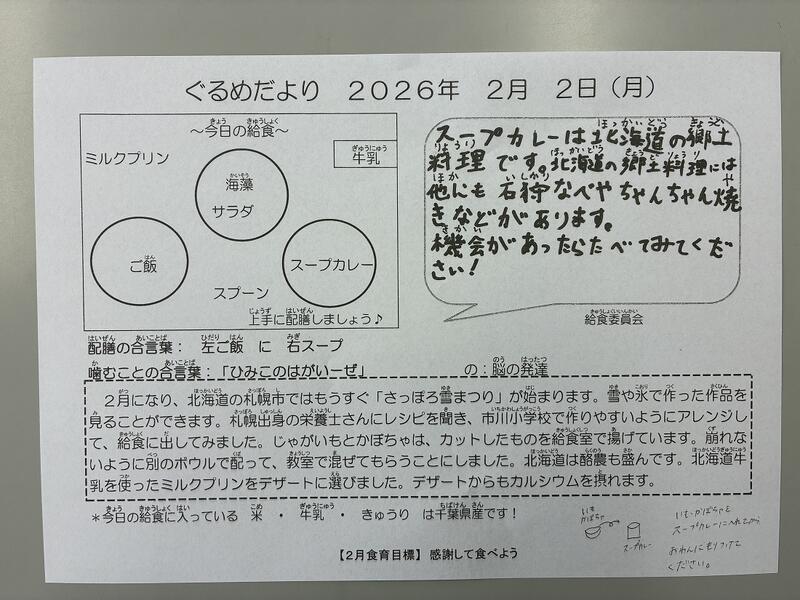 ぐるめだより　2026年　2月　2日（月）
～今日の給食～
ミルクプリン
牛乳
海藻
サラダ
ご飯
スープカレー
スプーン
上手に配膳しましょう♪
スープカレーは北海道の郷土
料理です。北海道の郷土料理には
他にも石狩なべやちゃんちゃん焼
きなどがあります。
機会があったらたべてみてくだ
さい!
給食委員会
配膳の合言葉：　左ご飯　に　右スープ
噛むことの合言葉：「ひみこのはがいーぜ」　の：脳の発達
2月になり、北海道の札幌市ではもうすぐ「さっぽろ雪まつり」が始まります。雪や氷で作った作品を
見ることができます。札幌出身の栄養士さんにレシピを聞き、市川小学校で作りやすいようにアレンジし
て、給食に出してみました。じゃがいもとかぼちゃは、カットしたものを給食室で揚げています。崩れな
いように別のボウルで配って、教室で混ぜてもらうことにしました。北海道は酪農も盛んです。北海道牛
乳を使ったミルクプリンをデザートに選びました。デザートからもカルシウムを摂れます。
＊今日の給食に入っている　米　・　牛乳　・　きゅうり　は千葉県産です！
いも
かぼちゃ
スープカレー
いも・かぼちゃを
スープカレーに入れてから
おわんにもりつけて
ください。
【2月食育目標】感謝して食べよう